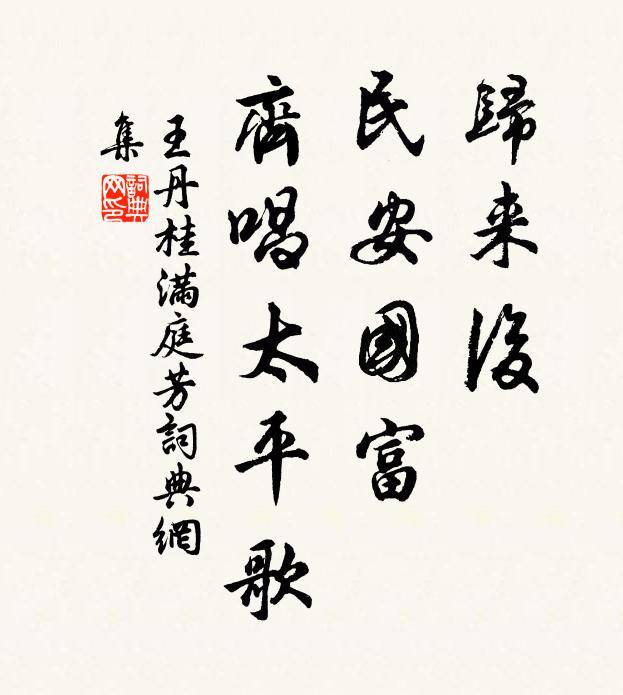 歸来後
民安國富
齊唱太平歌
王丹桂滿庭芳詞典網
集
詞典
网印